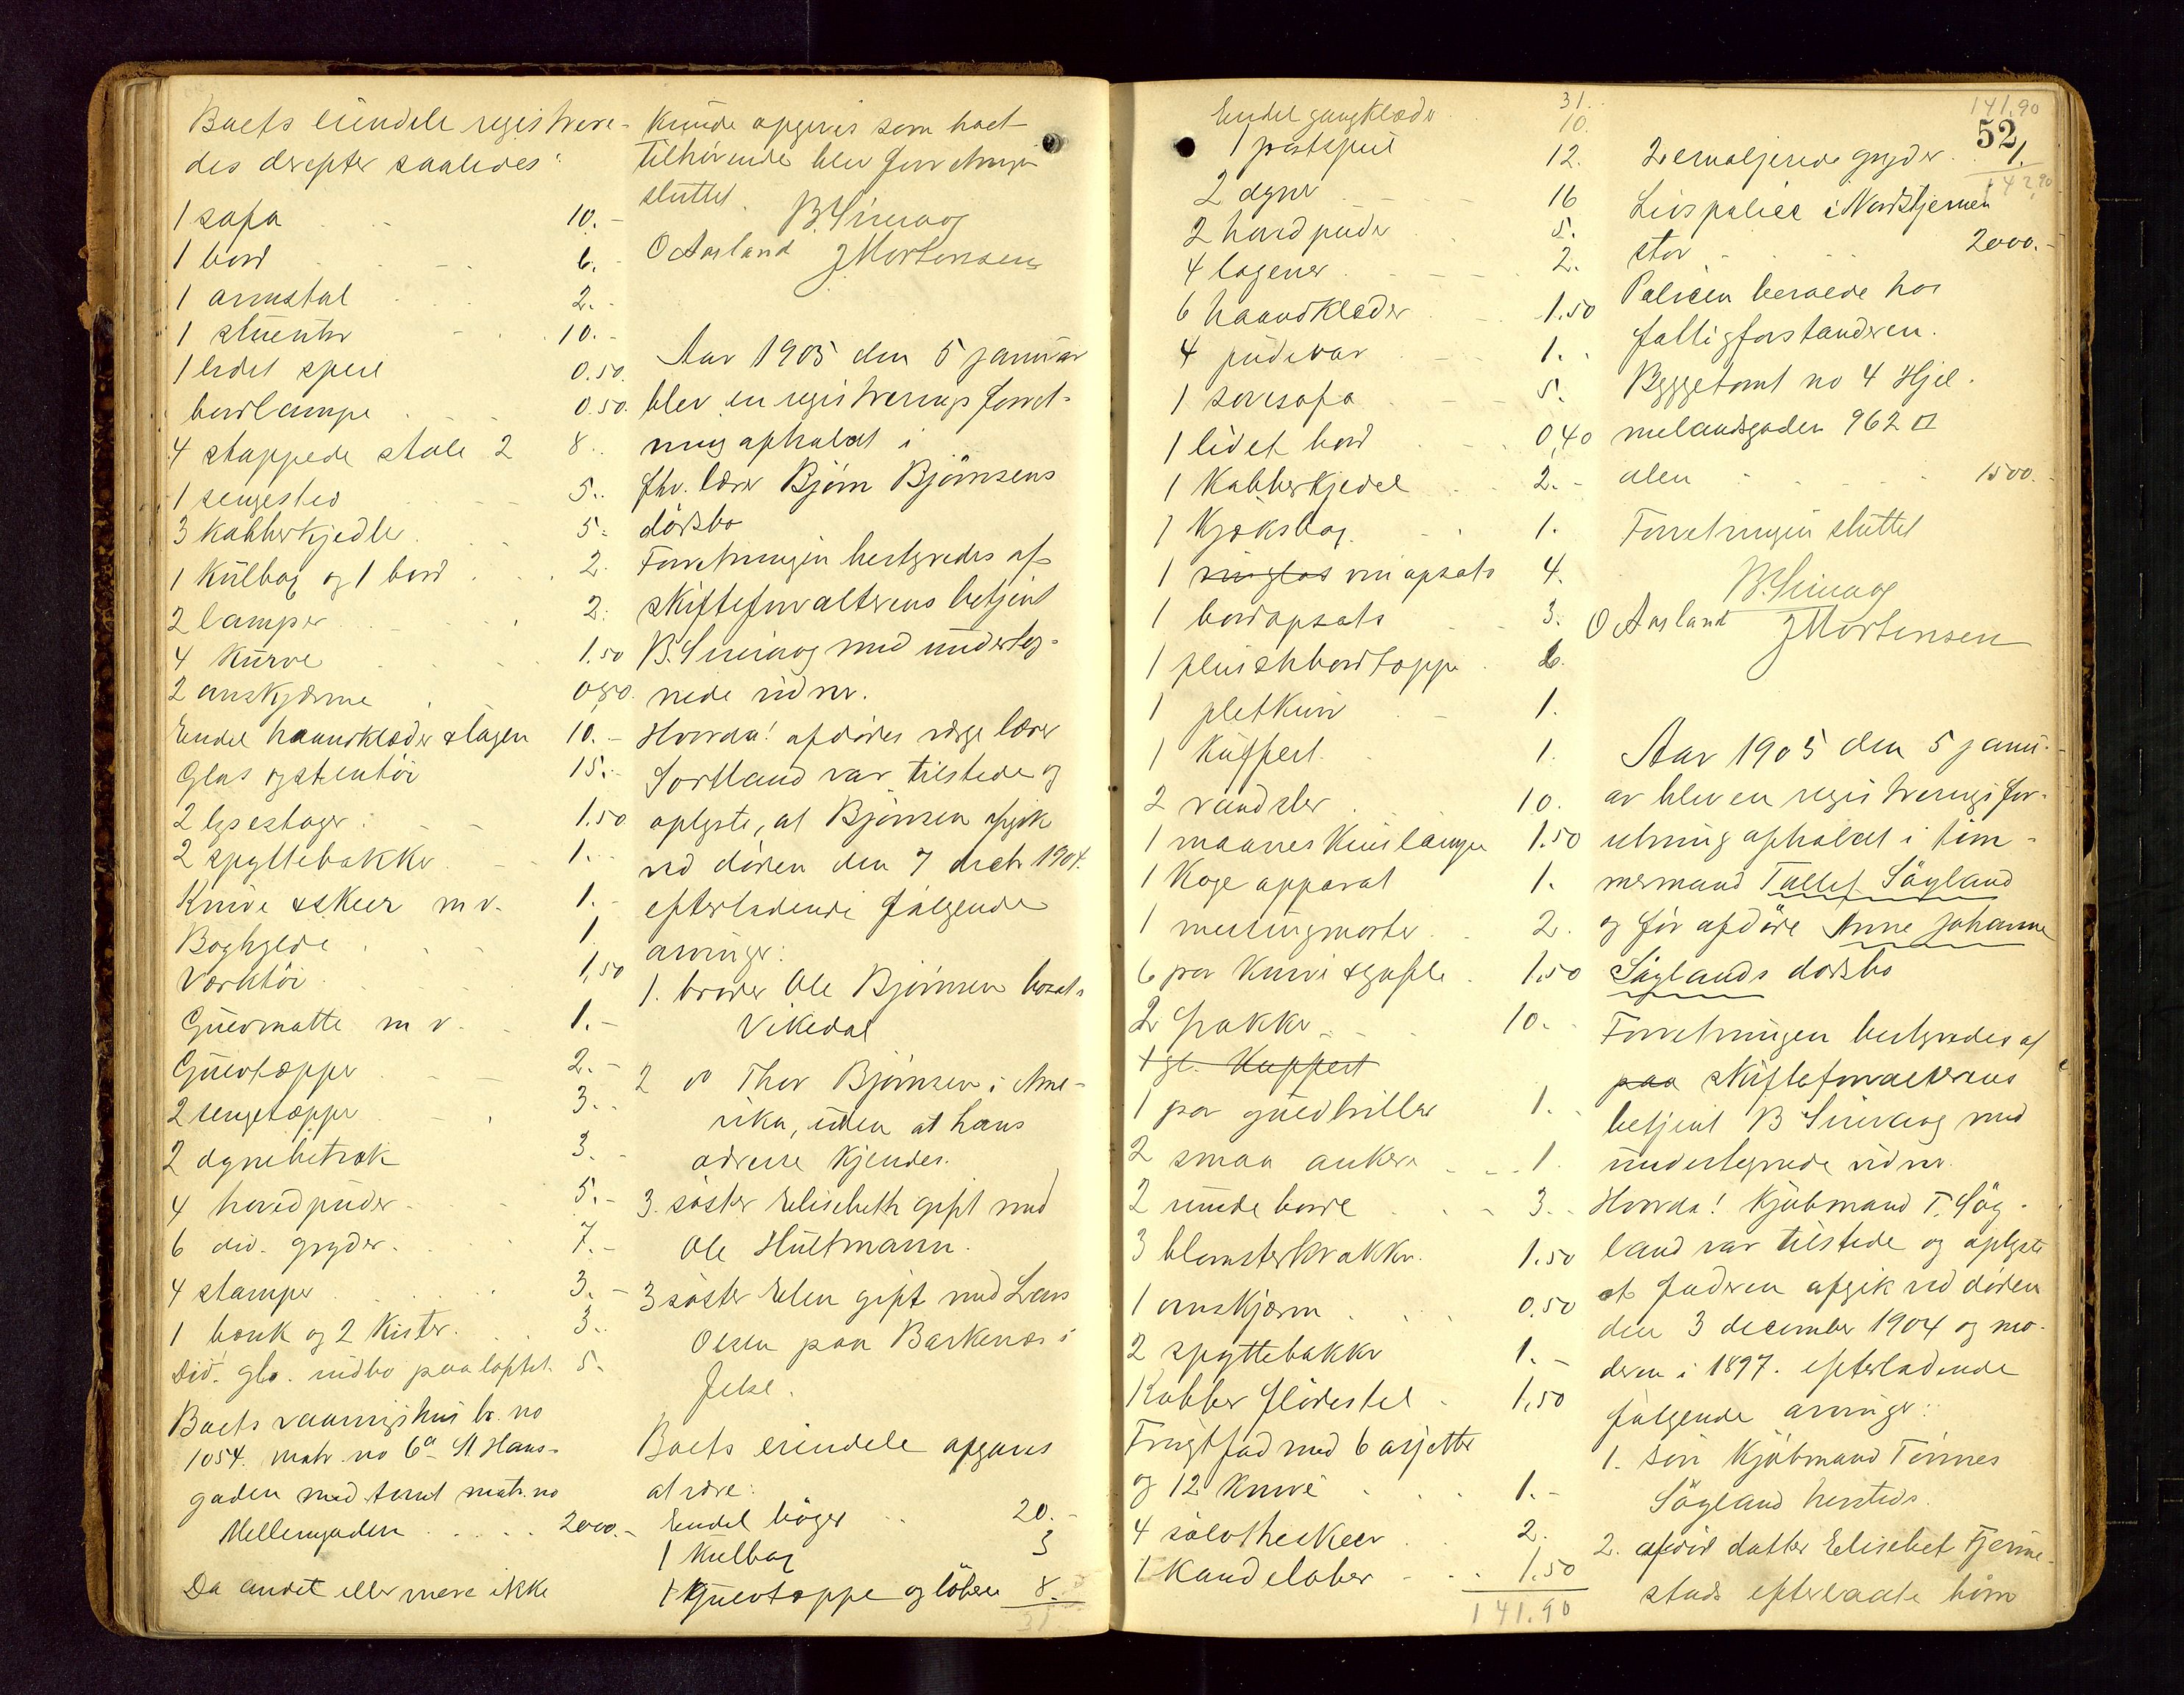 Boets eiendele registrere-
des derefter saaledes:
1 sofa 10.-
1 bord 6.-
1 armstol 2.-
1 stueuhr 10.-
1 lidet speil 0.50.
bordlampe 0.50.
4 stoppede stole 2 8..
1 sengested 5..
3 Kobberkjedler 5.
1 Kulbox og 1 bord 2.
2 lamper 2.
4 Kurve 1.50
2 omskjærme 0,50.
Endel haandklæder & lagen 10.-
Glas og stentöi 15.-
2 lysestager 1.50
2 spyttebakker 1.-
Knive & skeer m v. 1.-
Boghylde 1.
Værktöi 1,50
Gulvmatte m v. 1.-
Gulvtæpper 2.-
2 sengetæpper 3.-
2 dynebetræk 3.-
4 hovedpuder 5.-
6 div. gryder 7.-
4 stamper 3.-
1 bænk og 2 Kister. 3.-
Div. glo. indbo paa loftet. 5.-
Boets vaaningshus br. no
1054. matr. no 6a St Hans-
gaden med tomt matr. no
Mellemgaden 2000.-
Da andet eller mere ikke
Kunde opgives som boet
tilhörende blev forretningen
sluttet.
B. Sirevaag
O Aarland J Mortensen
Aar 1905 den 5 januar
blev en registreringsforret-
ning afholdt i
fhv. lærer Björn Björnsens
dödsbo
Forretningen bestyredes af
skifteforvalterens betjent
B. Sirevaag med underteg-
nede vidner.
Hvorda! afdödes værge lærer
Sortland var tilstede og
oplyste, at Björnsen afgik
ved döden den 7 decbr 1904.
efterladende følgende
arvinger:
1. broder Ole Björnsen bosat i
Vikedal
2 do Thor Björnsen i Ame-
rika, uden at hans
adresse kjendes.
3. söster Elisebeth gift med
Ole Hultmann.
3 söster Elen gift med Lars
Olsen paa Barkenes i
Jelse.
Boets eiendele opgaves
at være:
Endel böger 20.-
1 Kulbox 3
1 Gulvtæppe og löbere 8.-
31
Endel gangklæder 31.
10.
1 postspeil 12.
2 dyner 16
2 hovedpuder 5.
4 lagener 2.
6 haandklæder 1.50
4 pudevar 1.-
1 sovesofa 5.
1 lidet bord 0,40
1 Kobberkjedel 2.-
1 Kjøksbog. 1.
1 vinglas vinopsats 4.
1 bordopsats 3.
1 pluischbordtæppe 6.
1 pletkurv 1.
1 Kuffert 1.
2 vandsler 10.
1 maaneskinslampe 1.50
1 Kogeapparat 1.
1 messingmorter 2.
6 par Knive & gafle 1.50
2 frakker 10.-
1 gl. Kuffert
1 par guldbriller 1.-
2 smaa ankere 1.
2 runde borde 3.
3 blomsterkrakker. 1.50
1 omskjærm 0.50
2 spyttebakker 1.-
Kobber flödestel 1,50
Frugtfad med 6 asjetter
og 12 Knive 1.-
4 sölvtheskeer 2.
1 Kandelaber 1.50
141.90
141,90
52
2 emaljerede gryder 1.
142,90
Livspolice i Nordstjernen
stor 2000.-
Policen beroede hos
fattigforstanderen.
Byggetomt no 4 Hjel-
melandsgaden 962 □
alen 1500.-
Forretningen sluttet
B. Sirevaag
O Aarland J Mortensen
Aar 1905 den 5 janu-
ar blev en registreringsfor-
retning afholdt i töm-
mermand Tollef Sögland
og for afdöde Anne Johanne
Söglands dödsbo
Forretningen bestyredes af
paa skifteforvalterens
betjent B Sirevaag med
undertegnede vidner.
Hvorda! Kjöbmand T. Sög-
land var tilstede og oplyste
at faderen afgik ved döden
den 3 december 1904 og mo-
deren i 1897. efterladende
følgende arvinger:
1. sön Kjöbmand Tönnes
Sögland hersteds.
2. afdöd datter Elisebet Tjerne-
stads efterladte börn